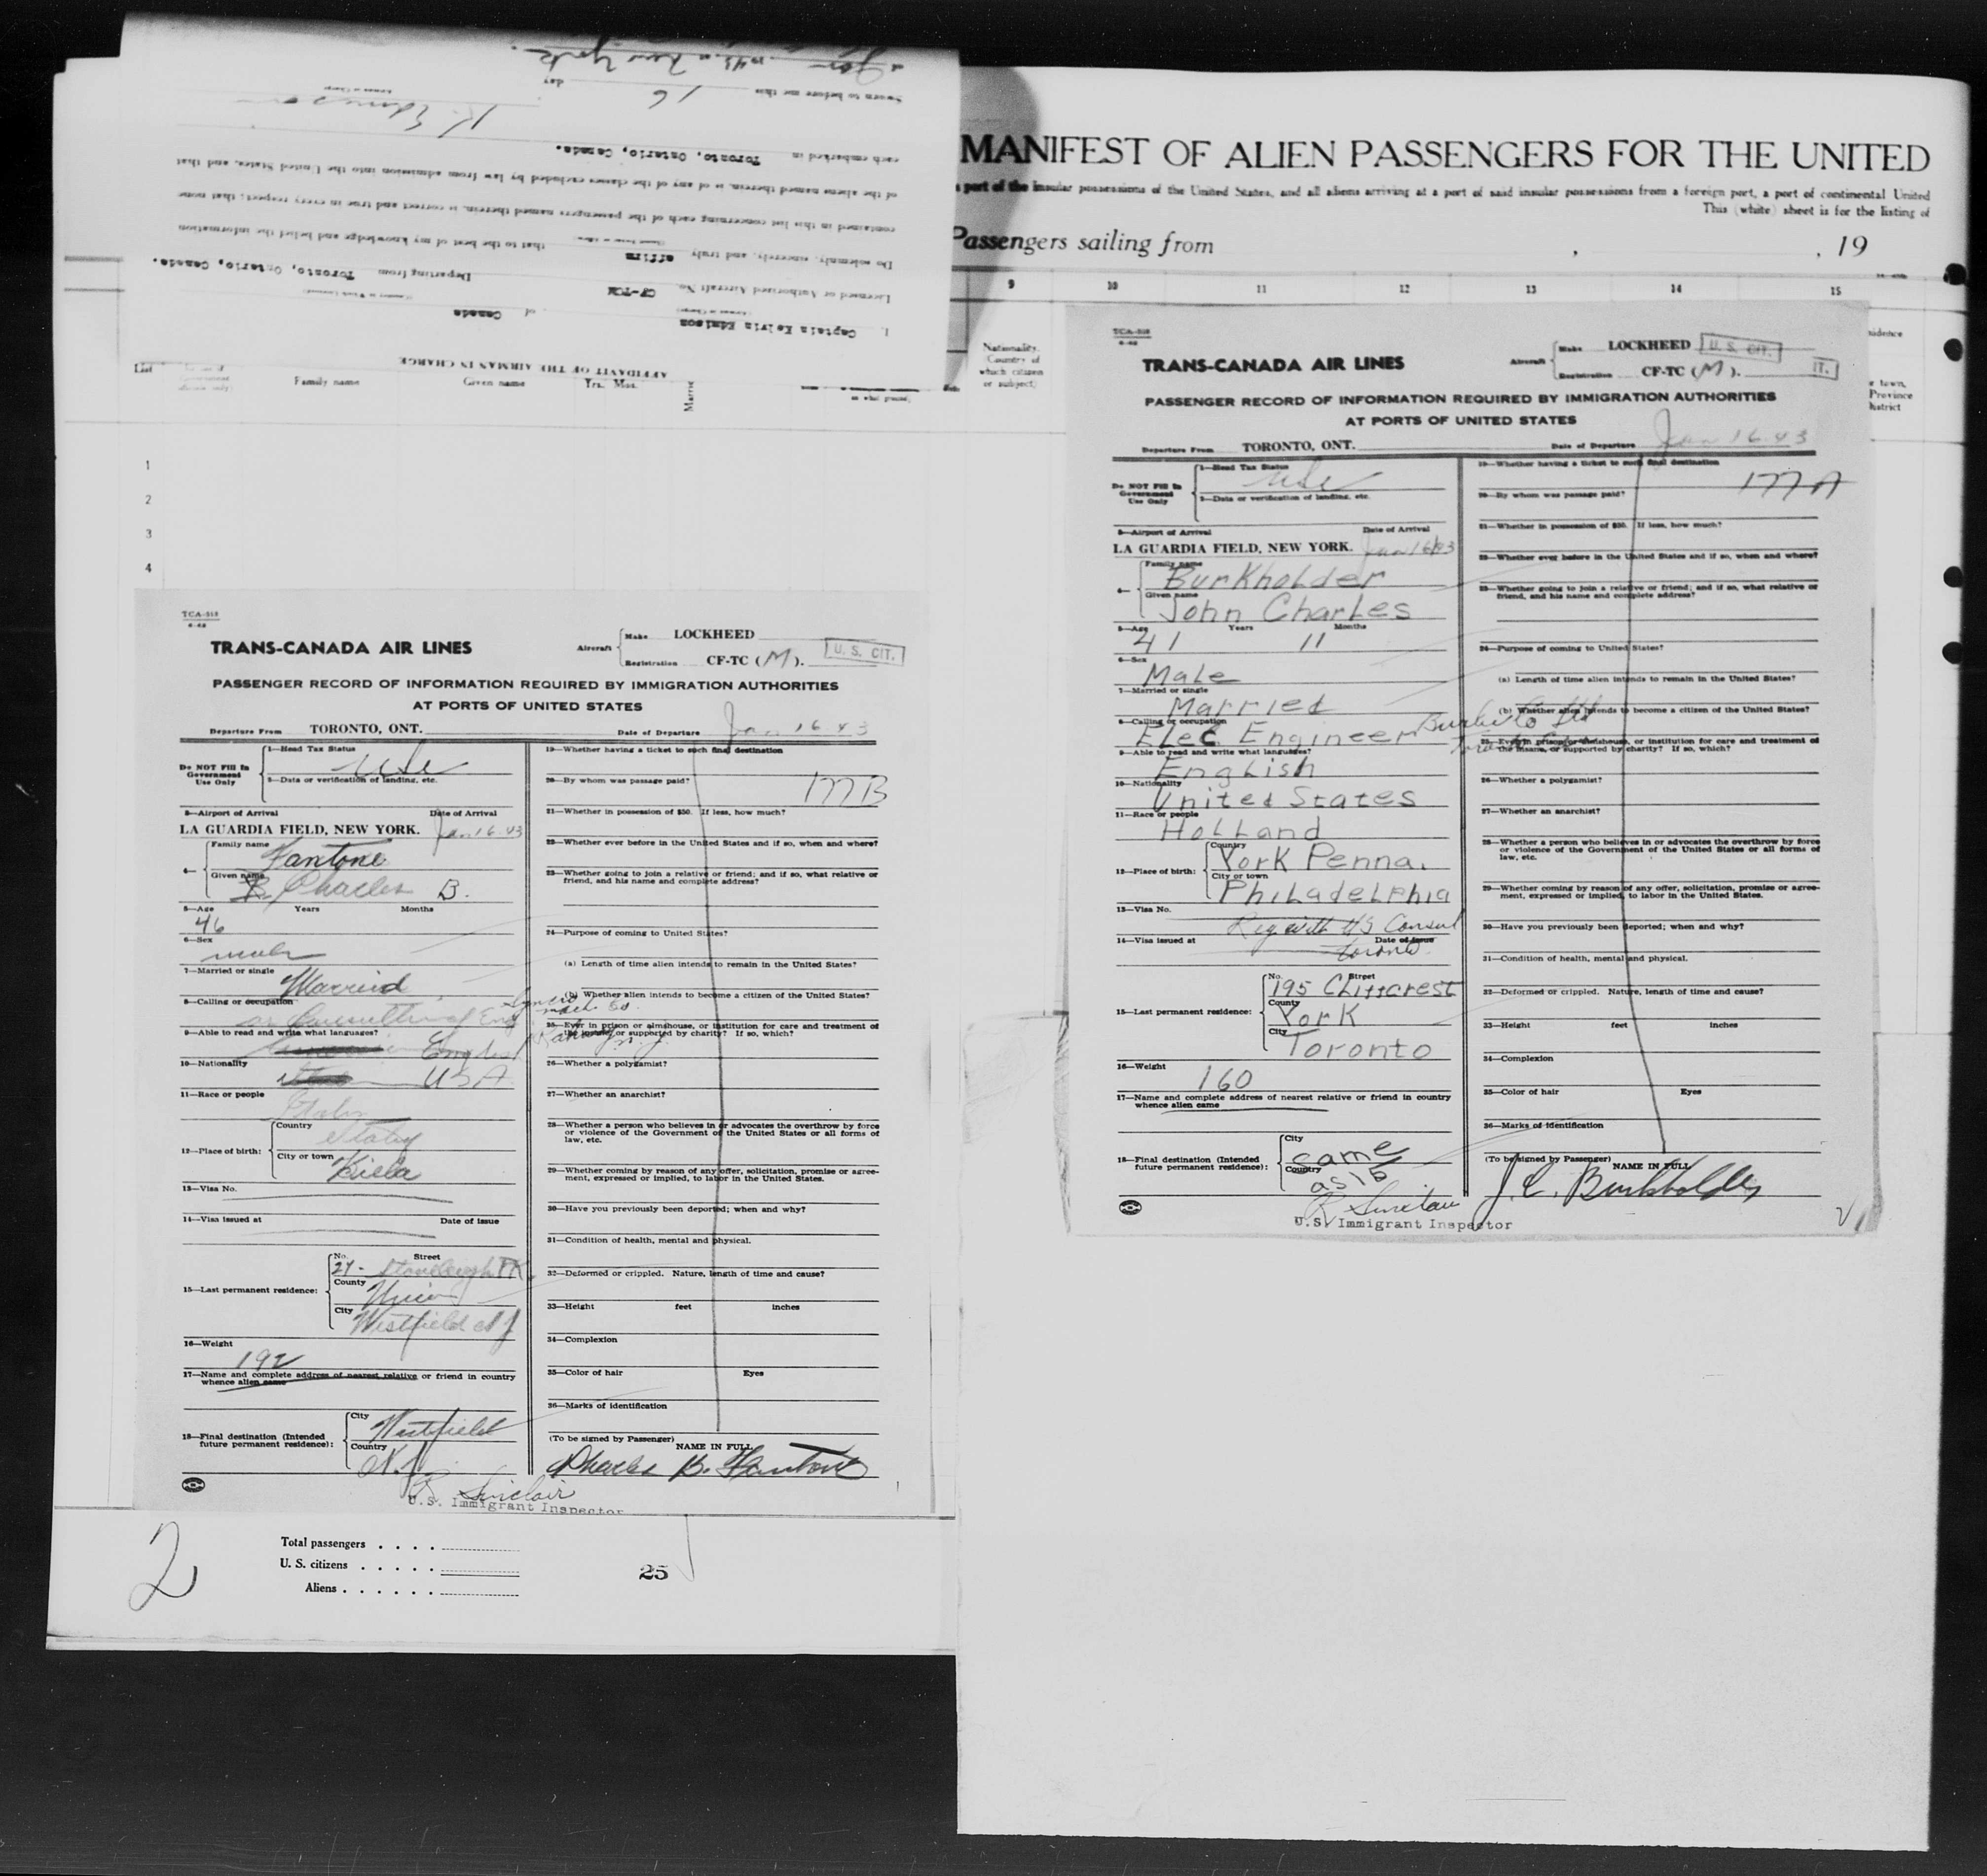 AFFIDAVIT OF THE AIRMAN IN CHARGE
I, Captain Kelvin Edmison of Canada
Licensed or Authorized Aircraft No. CF-TCM Departing from Toronto, Ontario, Canada.
Do solemnly, sincerely, and truly affirm that to the best of my knowledge and belief the information
contained in this list concerning each of the passengers named therein, is correct and true in every respect; that none
of the aliens named therein, is of any of the classes excluded by law from admission into the United States, and that
each embarked in Toronto, Ontario, Canada.
K. Edmison
Sworn to before me this 16 day
New York
List
Family name Given name Yrs. Mos.
1
2
3
4
TCA-518
TRANS-CANADA AIR LINES
Aircraft Make LOCKHEED
Registration CF-TC (M).
U. S. CIT.
PASSENGER RECORD OF INFORMATION REQUIRED BY IMMIGRATION AUTHORITIES
AT PORTS OF UNITED STATES
Departure From TORONTO, ONT. Date of Departure Jan 16.43
Do NOT Fill In
Government
Use Only
1—Head Tax Status
2—Data or verification of landing, etc.
3—Airport of Arrival Date of Arrival
LA GUARDIA FIELD, NEW YORK. Jan 16.43
4— Family name Fantone
Given name Charles B.
5—Age Years Months
46
6—Sex
male
7—Married or single
Married
8—Calling or occupation
Consulting Eng
9—Able to read and write what languages?
English
10—Nationality
USA
11—Race or people
12—Place of birth: Country Italy
City or town
13—Visa No.
14—Visa issued at Date of issue
15—Last permanent residence: No. Street
27
County
Union
City
Westfield N J
16—Weight
192
17—Name and complete address of nearest relative or friend in country
whence alien came
18—Final destination (Intended
future permanent residence):
City Westfield
Country N. J.
R Sinclair
U.S. Immigrant Inspector
19—Whether having a ticket to such final destination
20—By whom was passage paid?
MB
21—Whether in possession of $50. If less, how much?
22—Whether ever before in the United States and if so, when and where?
23—Whether going to join a relative or friend; and if so, what relative or
friend, and his name and complete address?
24—Purpose of coming to United States?
(a) Length of time alien intends to remain in the United States?
(b) Whether alien intends to become a citizen of the United States?
25—Ever in prison or almshouse, or institution for care and treatment of
the insane, or supported by charity? If so, which?
26—Whether a polygamist?
27—Whether an anarchist?
28—Whether a person who believes in or advocates the overthrow by force
or violence of the Government of the United States or all forms of
law, etc.
29—Whether coming by reason of any offer, solicitation, promise or agree-
ment, expressed or implied, to labor in the United States.
30—Have you previously been deported; when and why?
31—Condition of health, mental and physical.
32—Deformed or crippled. Nature, length of time and cause?
33—Height feet inches
34—Complexion
35—Color of hair Eyes
36—Marks of identification
(To be signed by Passenger) NAME IN FULL
Charles B. Fantone
2
Total passengers
U. S. citizens
Aliens
25
MANIFEST OF ALIEN PASSENGERS FOR THE UNITED
a part of the insular possessions of the United States, and all aliens arriving at a port of said insular possessions from a foreign port, a port of continental United
This (white) sheet is for the listing of
Passengers sailing from , , 19
9 10 11 12 13 14 15
Nationality.
Country of
which citizen
or subject)
TCA-518
TRANS-CANADA AIR LINES
Aircraft Make LOCKHEED
Registration CF-TC (M).
U. S. CIT.
IT.
PASSENGER RECORD OF INFORMATION REQUIRED BY IMMIGRATION AUTHORITIES
AT PORTS OF UNITED STATES
Departure From TORONTO, ONT. Date of Departure Jan 16.43
Do NOT Fill In
Government
Use Only
1—Head Tax Status
2—Data or verification of landing, etc.
3—Airport of Arrival Date of Arrival
LA GUARDIA FIELD, NEW YORK. Jan 16/43
4— Family name Burkholder
Given name John Charles
5—Age Years Months
41 11
6—Sex
Male
7—Married or single
Married
8—Calling or occupation
Elec Engineer
9—Able to read and write what languages?
English
10—Nationality
United States
11—Race or people
Holland
12—Place of birth: Country York Penna.
City or town Philadelphia
13—Visa No.
Reg with US Consul
14—Visa issued at Date of issue
Toronto
15—Last permanent residence: No. Street
195 Cliffcrest
County
York
City
Toronto
16—Weight
160
17—Name and complete address of nearest relative or friend in country
whence alien came
18—Final destination (Intended
future permanent residence):
City same
Country as 15
R Sinclair
U.S. Immigrant Inspector
19—Whether having a ticket to such final destination
20—By whom was passage paid?
MA
21—Whether in possession of $50. If less, how much?
22—Whether ever before in the United States and if so, when and where?
23—Whether going to join a relative or friend; and if so, what relative or
friend, and his name and complete address?
24—Purpose of coming to United States?
(a) Length of time alien intends to remain in the United States?
(b) Whether alien intends to become a citizen of the United States?
25—Ever in prison or almshouse, or institution for care and treatment of
the insane, or supported by charity? If so, which?
26—Whether a polygamist?
27—Whether an anarchist?
28—Whether a person who believes in or advocates the overthrow by force
or violence of the Government of the United States or all forms of
law, etc.
29—Whether coming by reason of any offer, solicitation, promise or agree-
ment, expressed or implied, to labor in the United States.
30—Have you previously been deported; when and why?
31—Condition of health, mental and physical.
32—Deformed or crippled. Nature, length of time and cause?
33—Height feet inches
34—Complexion
35—Color of hair Eyes
36—Marks of identification
(To be signed by Passenger) NAME IN FULL
J. C. Burkholder